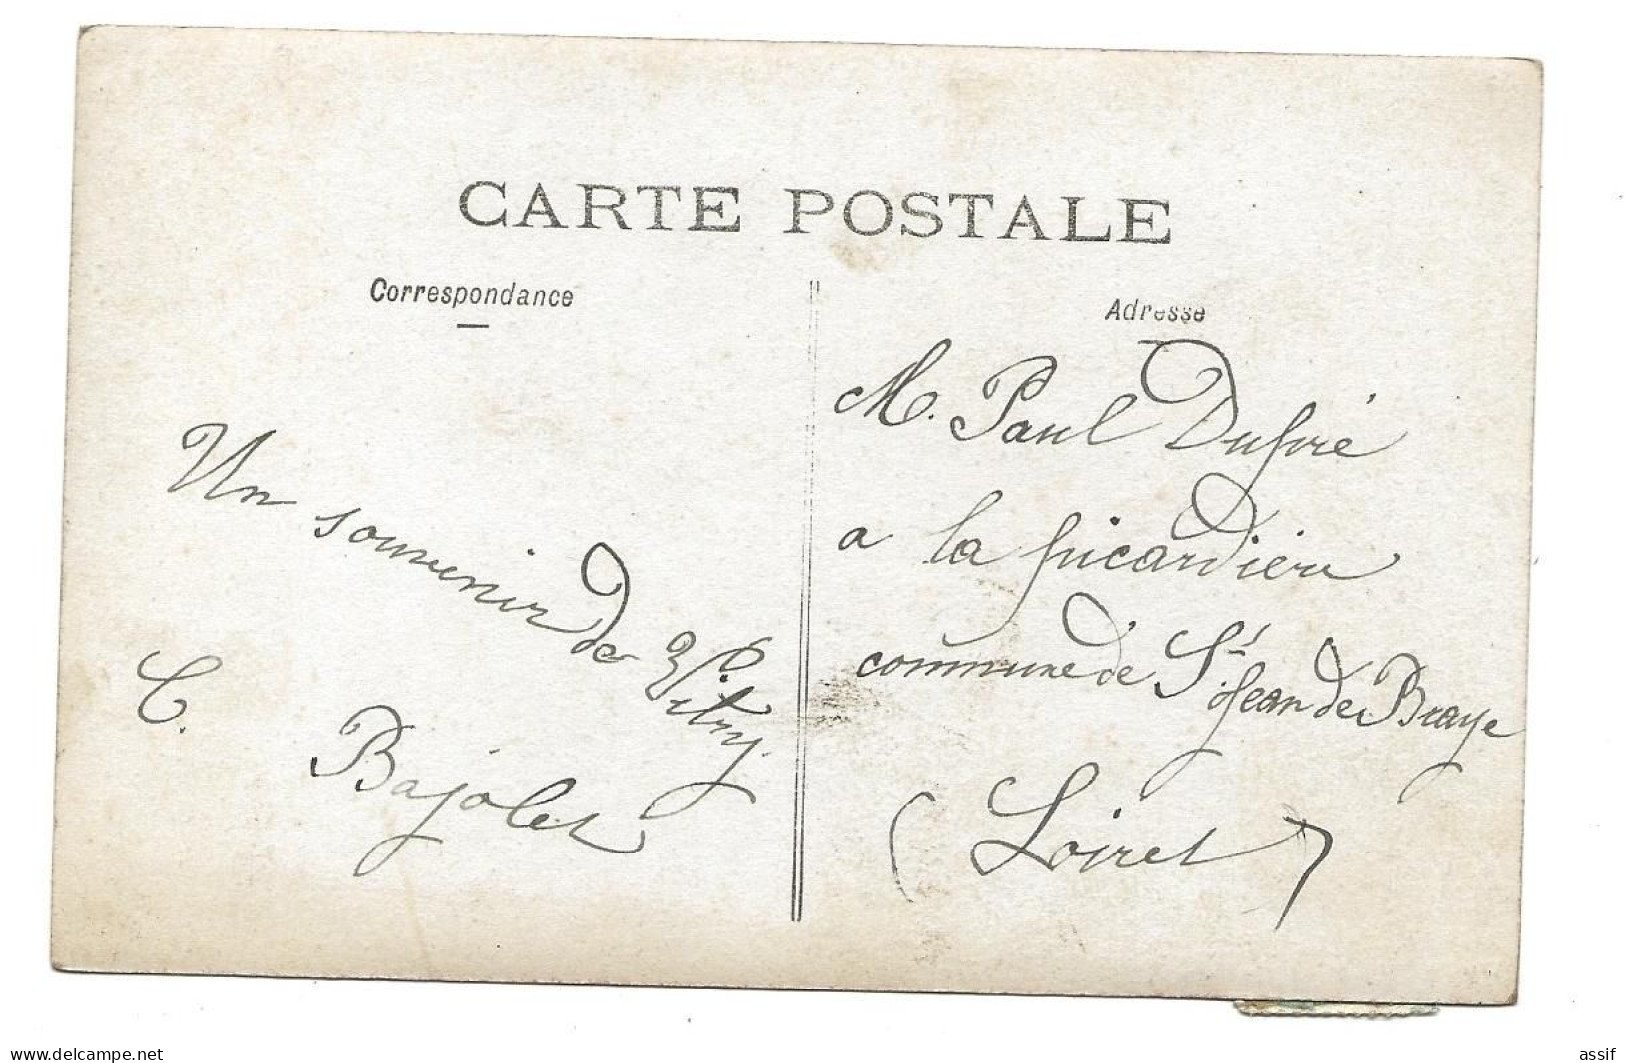 CARTE POSTALE
Correspondance
Adresse
Un souvenir de Vitry.
C. Bajolet
M. Paul Duforé
a la picardière
commune de St Jean de Braye
(Loiret)
https://www.delcampe.net
assif